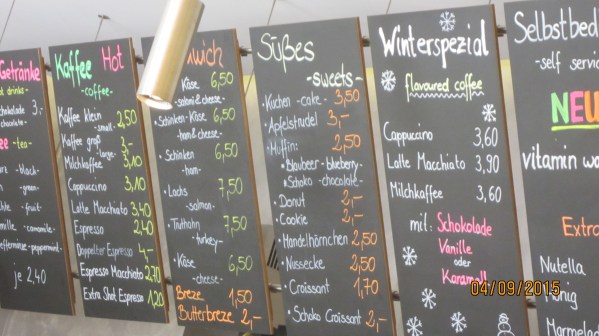 Getränke
drinks-
3,-
-chocolate-
-tea-
-black-
-green-
-fruit-
-camomile-
-peppermint-
je 2,40
Kaffee Hot
-coffee-
Kaffee klein 2,50
-small-
Kaffee groß 3,-
-large-
Milchkaffee 3,10
Cappuccino 3,10
Latte Macchiato 3,40
Espresso 2,40
Doppelter Espresso 4,-
Espresso Macchiato 2,70
Extra Shot Espresso 1,20
wich
Käse 6,50
-salami & cheese-
Schinken-Käse 6,50
-ham & cheese-
Schinken 6,50
-ham-
Lachs 7,50
-salmon-
Truthahn 7,50
-turkey-
Käse 6,50
-cheese-
Breze 1,50
Butterbreze 2,-
Süßes
-sweets-
Kuchen -cake- 3,50
Apfelstrudel 3,-
Muffin: 2,50
Blaubeer -blueberry-
Schoko -chocolate-
Donut 2,-
Cookie 2,-
Mandelhörnchen 2,50
Nussecke 2,50
Croissant 1,70
Schoko Croissant 2,-
Winterspezial
flavoured coffee
Cappuccino 3,60
Latte Macchiato 3,90
Milchkaffee 3,60
mit: Schokolade
Vanille
oder
Karamell
Selbstbed
-self servic
NEU
vitamin wa
Extra
Nutella
Honig
Marmelad
04/09/2015